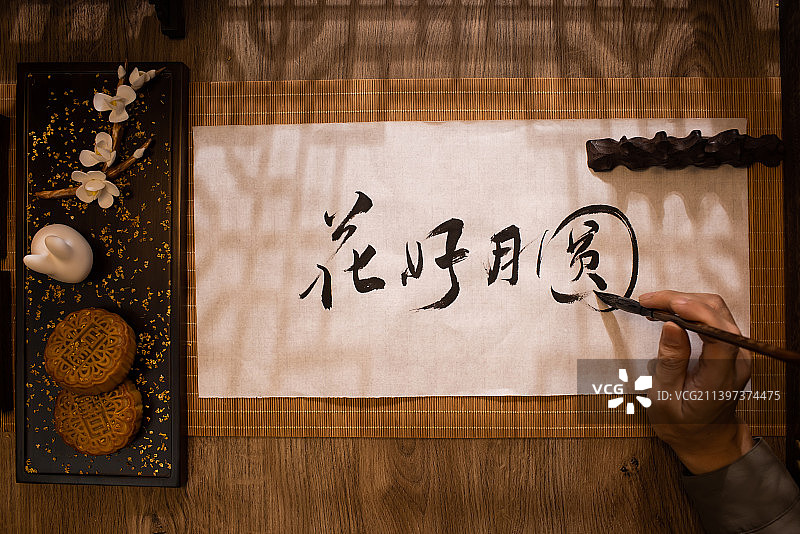 花好月圆
VCG VCG211397374475